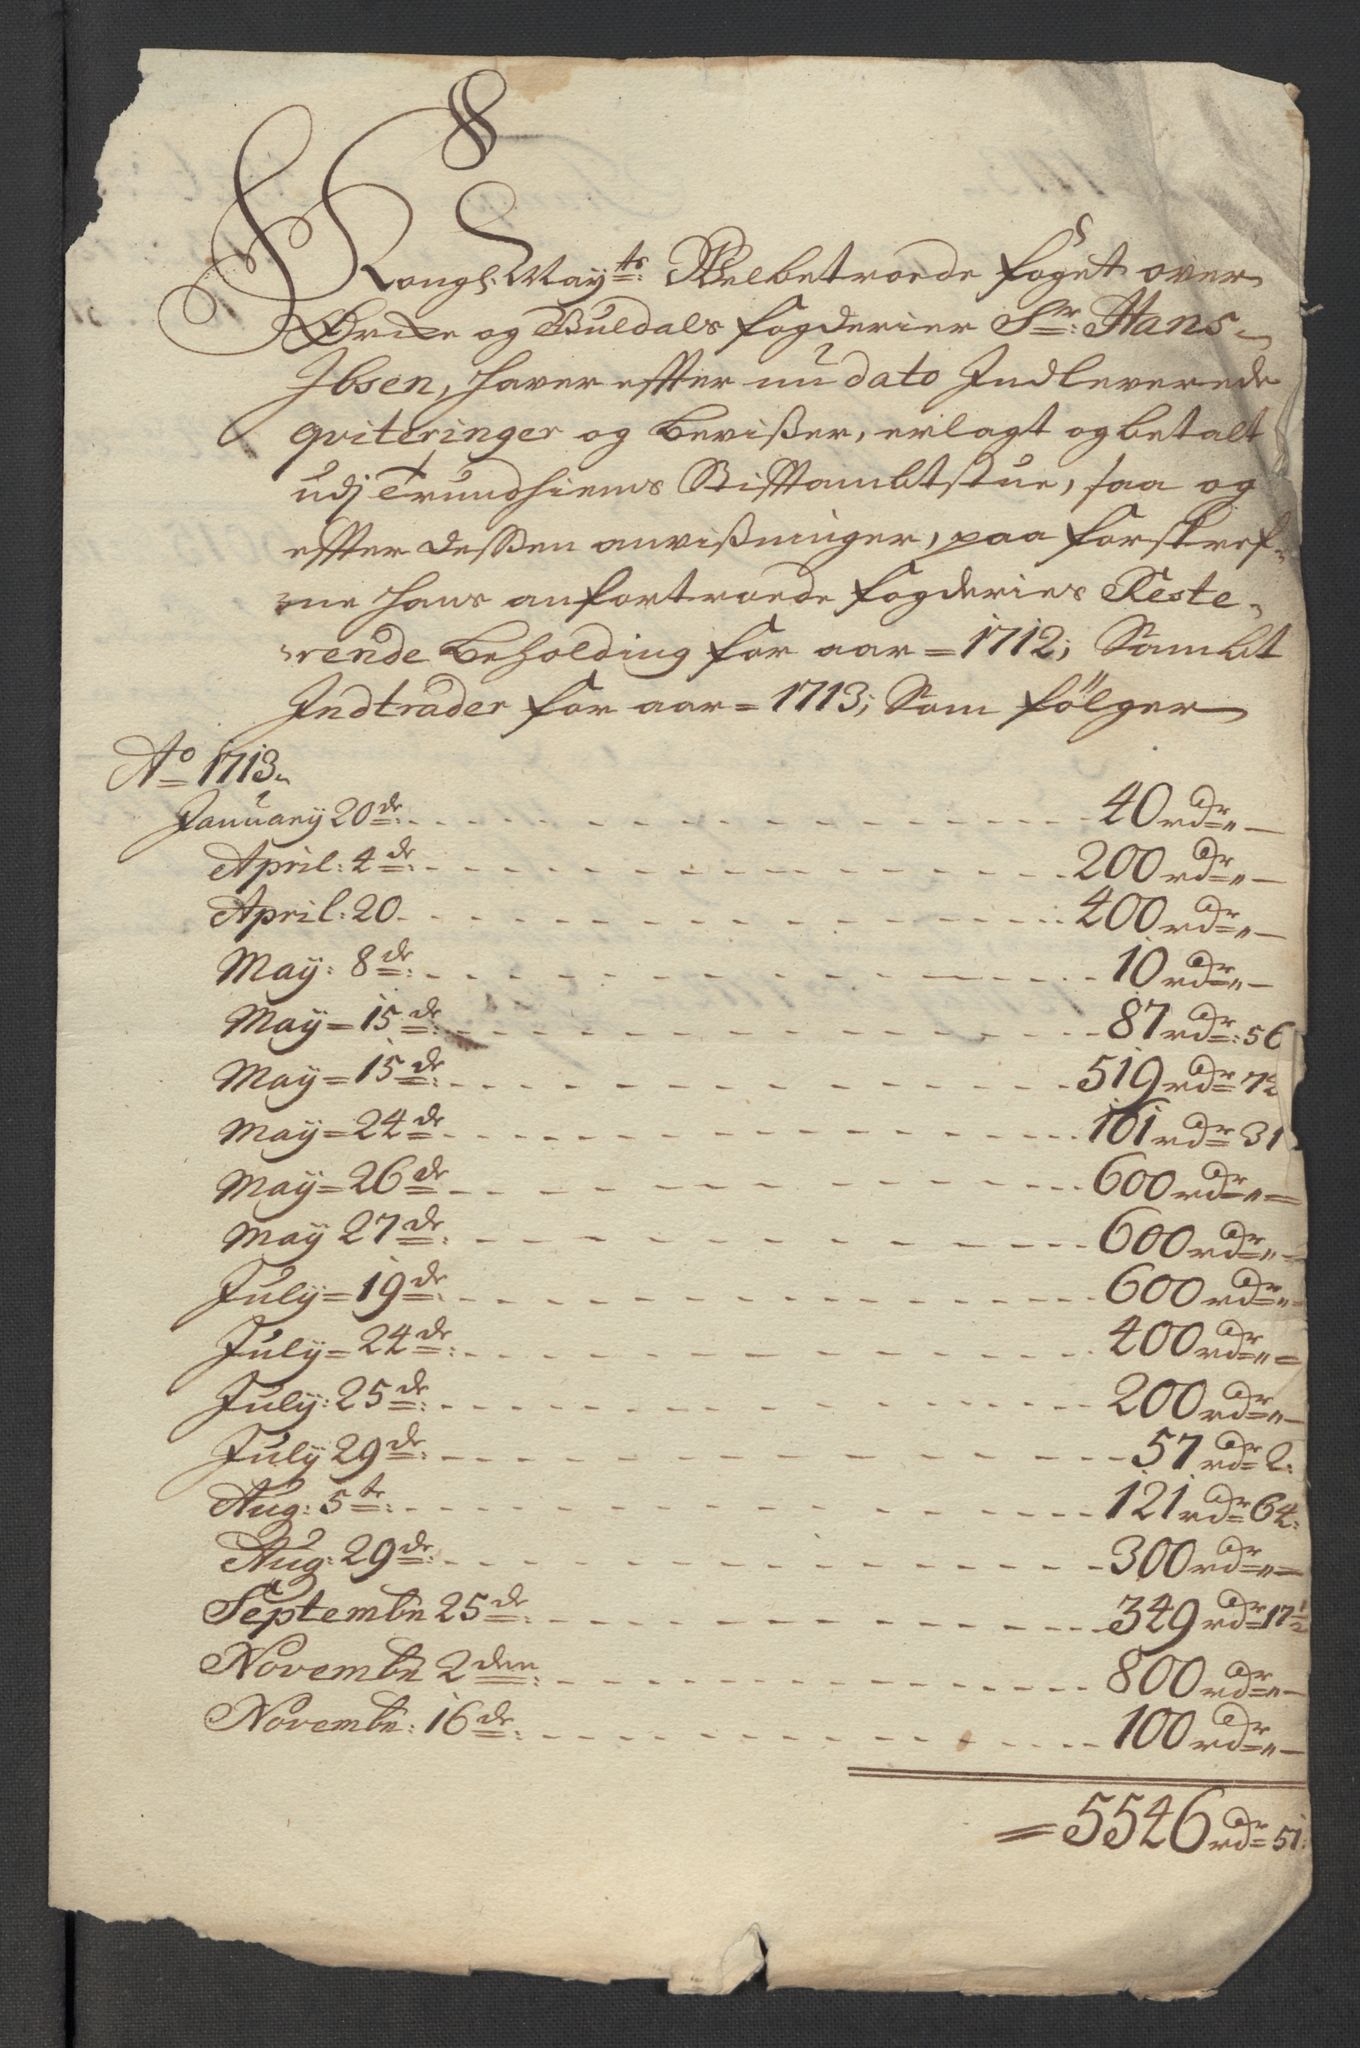 Kongl: May:ts Welbetroede foget over
Ørche og Guldals fogderier Sr: Hans
Ibsen, haver effter nu dato Indleverede
qviteringer og bevißer, erlagt og betalt
udj Trundhiems Stifftambtstue, saa og
effter dessen anvißninger, paa forskref-
ne hans anfortroede fogderies Reste-
rende beholding for aar = 1712; Sambt
Indtrader for aar = 1713; Som fölger
Ao 1713
January 20de: 40 rdr „ —
April: 4de: 200 rdr „ —
April: 20 400 rdr „ —
May: 8de: 10 rdr „ —
May = 15de: 87 rdr: 56
May = 15de: 519 rdr 72
May = 24de 101 rdr 31
May = 26de 600 rdr „ =
May 27de: 600 rdr „ =
July = 19de: 600 rdr „ =
July = 24de: 400 rdr „ =
July: 25de: 200 rdr „ —
July 29de: 57 rdr 2:
Aug: 5te: 121 rdr 64:
Aug: 29de: 300 rdr „ =
Septembr 25de: 349 rdr 17½
Novembr 2den: 800 rdr „ —
Novembr: 16de: 100 rdr „ —
= 5546 rdr 51: